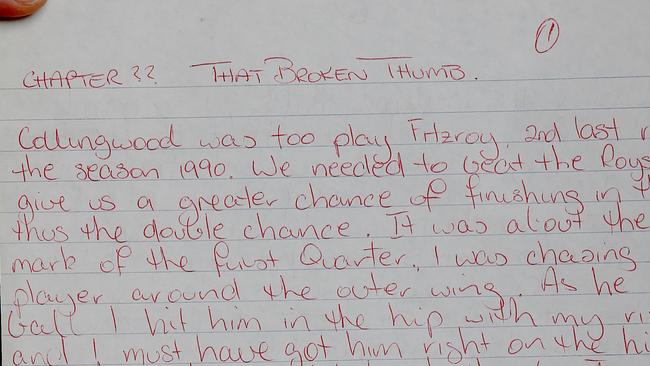 1
CHAPTER ?? THAT BROKEN THUMB.
Collingwood was too play Fitzroy, 2nd last
the season 1990. We needed to beat the Roys
give us a greater chance of finishing in
thus the double chance. It was about the
mark of the first Quarter, I was chasing
player around the outer wing. As he
ball I hit him in the hip with my
and I must have got him right on the